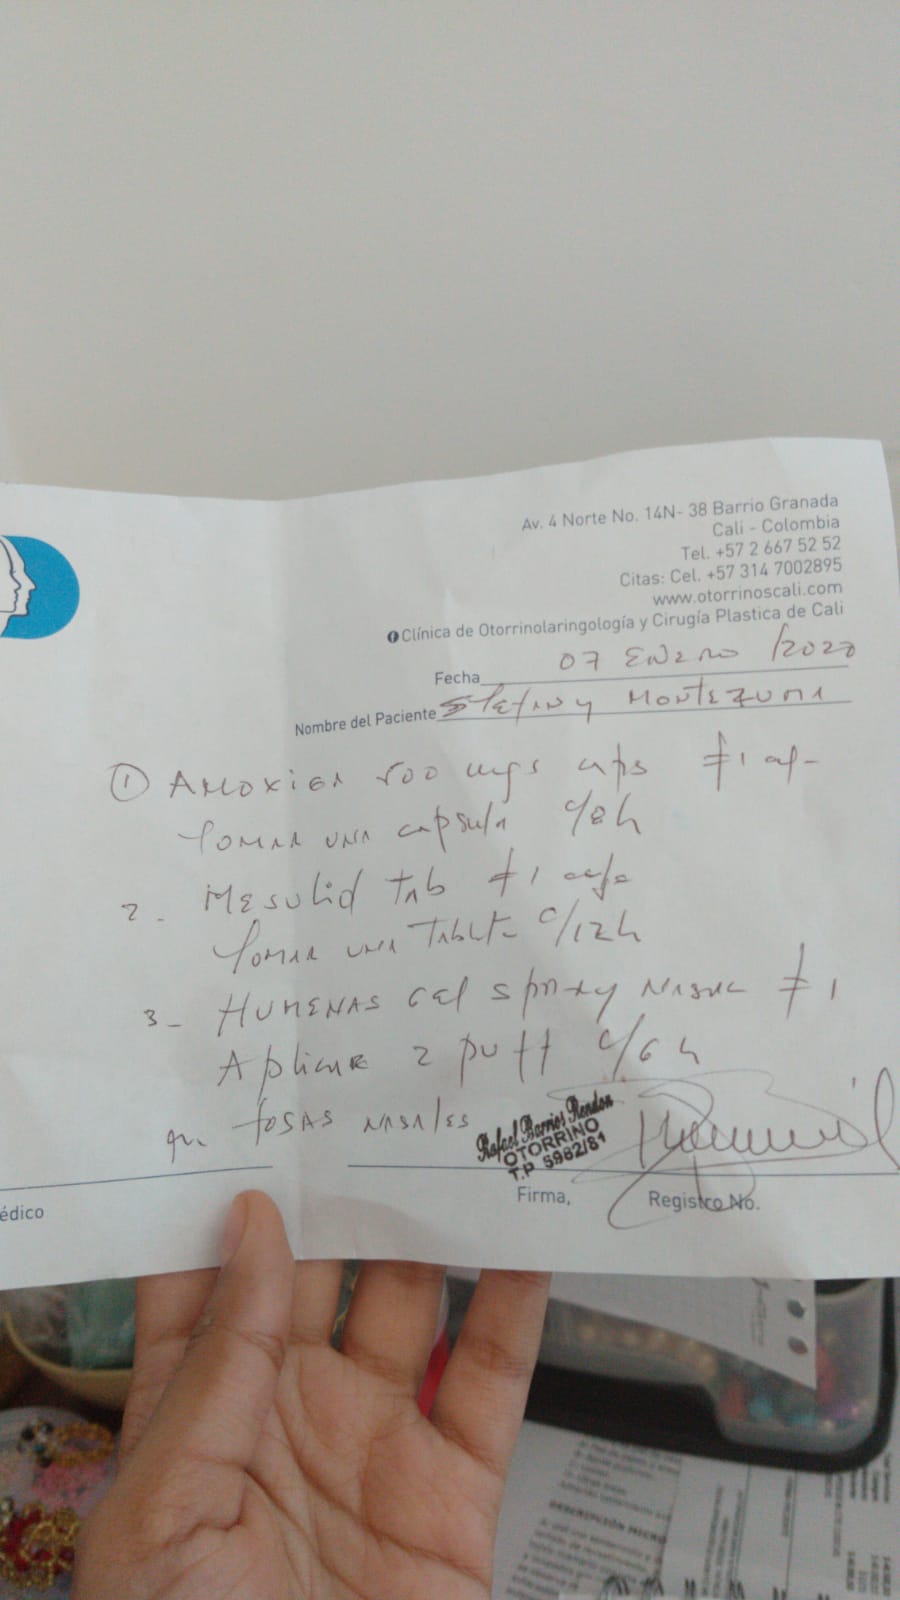 Av. 4 Norte No. 14N- 38 Barrio Granada
Cali - Colombia
Tel. +57 2 667 52 52
Citas: Cel. +57 314 7002895
www.otorrinoscali.com
Clínica de Otorrinolaringología y Cirugía Plastica de Cali
Fecha 07 ENERO /2020
Nombre del Paciente Stefany MONTEZUMA
① 500 mgs #1
TOMAR UNA capsula c/8h
2- MESULID tab #1
TOMAR UNA TABLET c/12h
3- HUMENAS GEL SPRAY NASAL #1
APLICAR 2 puff c/6h
FOSAS NASALES
Rafael Barrios Rendon
OTORRINO
T.P. 5982/81
Firma, Registro No.
édico
DESCRIPCIÓN MICRO